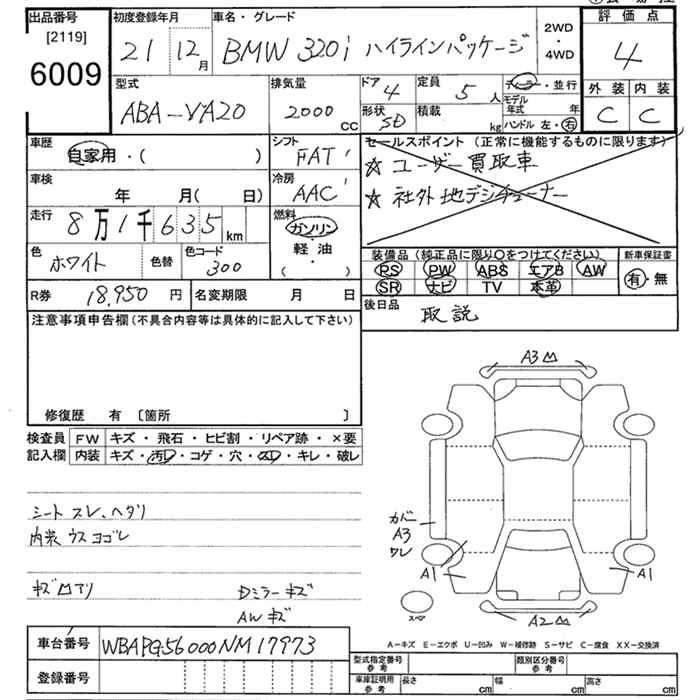 出品番号 初度登録年月 車名・グレード 評価点
[2119]
6009
21 12月 BMW 320i ハイラインパッケージ 2WD・4WD 4
型式 排気量 ドア 4 定員 5人 ディーラー・並行 外装 内装
ABA-VA20 2000 CC 形状 SD 積載 kg モデル年式 年 C C
ハンドル 左・右
車歴 自家用・( ) シフト FAT セールスポイント(正常に機能するものに限ります)
☆ ユーザー買取車
車検 年 月( 日) 冷房 AAC ☆ 社外地デジチューナー
走行 8万1千635km 燃料 ガソリン・軽油・( )
色 ホワイト 色替 色コード 300 装備品(純正品に限り○をつけてください) 新車保証書
PS PW ABS エアB AW 有・無
SR ナビ TV 本革
R券 18,950円 名変期限 月 日 後日品 取説
注意事項申告欄(不具合内容等は具体的に記入して下さい)
修復歴 有〔箇所 〕
検査員記入欄 FW キズ・飛石・ヒビ割・リペア跡・×要
内装 キズ・汚レ・コゲ・穴・スレ・キレ・破レ
A3
シート スレ、ヘタリ
内装 ウスヨゴレ
カバー
A3
ワレ
A1 A1
キズ 凹アリ Dミラーキズ
AWキズ
スペア
A2
A-キズ E-エクボ U-凹み W-補修跡 S-サビ C-腐食 XX-交換済
車台番号 WBAPG56000NM17973
型式指定番号 参考 類別区分番号 参考
登録番号
車庫証明用 参考 長さ cm 幅 cm 高さ cm